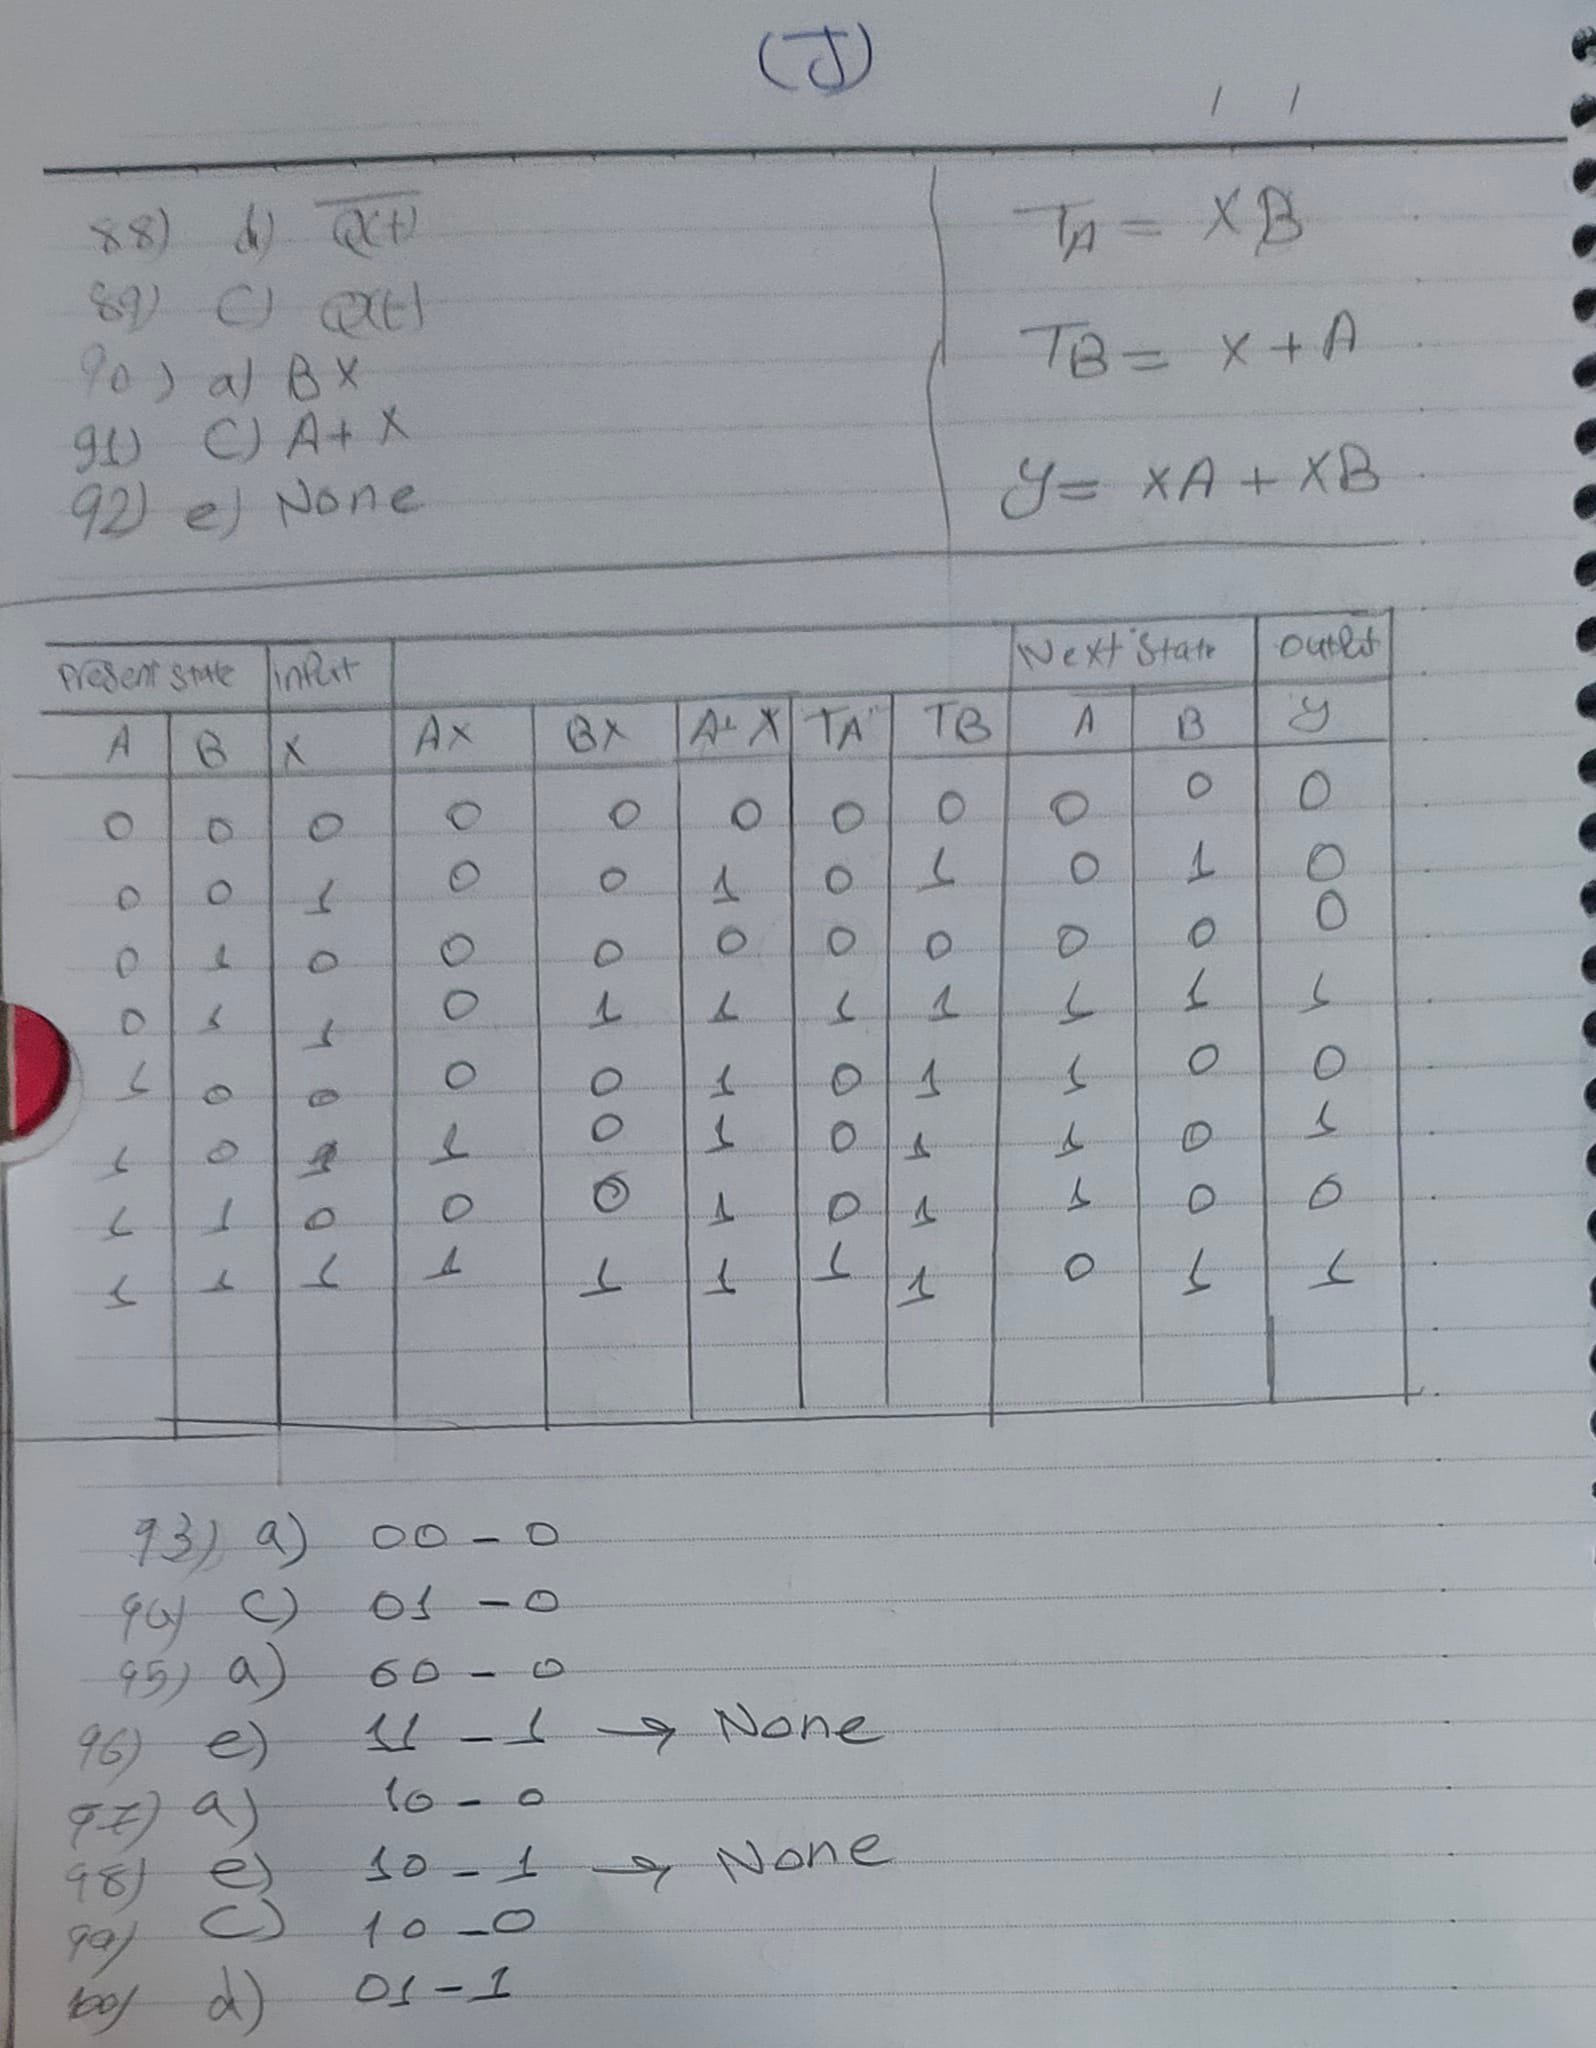 (J)
/ /
88) d) Q(t)
89) c) Q(t)
90) a) BX
91) c) A+X
92) e) None
TA = XB
TB = X+A
y = XA + XB
Present state | input | Next State | output
A | B | X | AX | BX | A+X | TA | TB | A | B | y
0 0 0 0 0 0 0 0 0 0 0
0 0 1 0 0 1 0 1 0 1 0
0 1 0 0 0 0 0 0 0 0 0
0 1 1 0 1 1 1 1 1 1 1
1 0 0 0 0 1 0 1 1 0 0
1 0 1 1 0 1 0 1 1 0 1
1 1 0 0 0 1 0 1 1 0 0
1 1 1 1 1 1 1 1 0 1 1
93) a) 00-0
94) c) 01-0
95) a) 00-0
96) e) 11-1 → None
97) a) 10-0
98) e) 10-1 → None
99) c) 10-0
100) d) 01-1